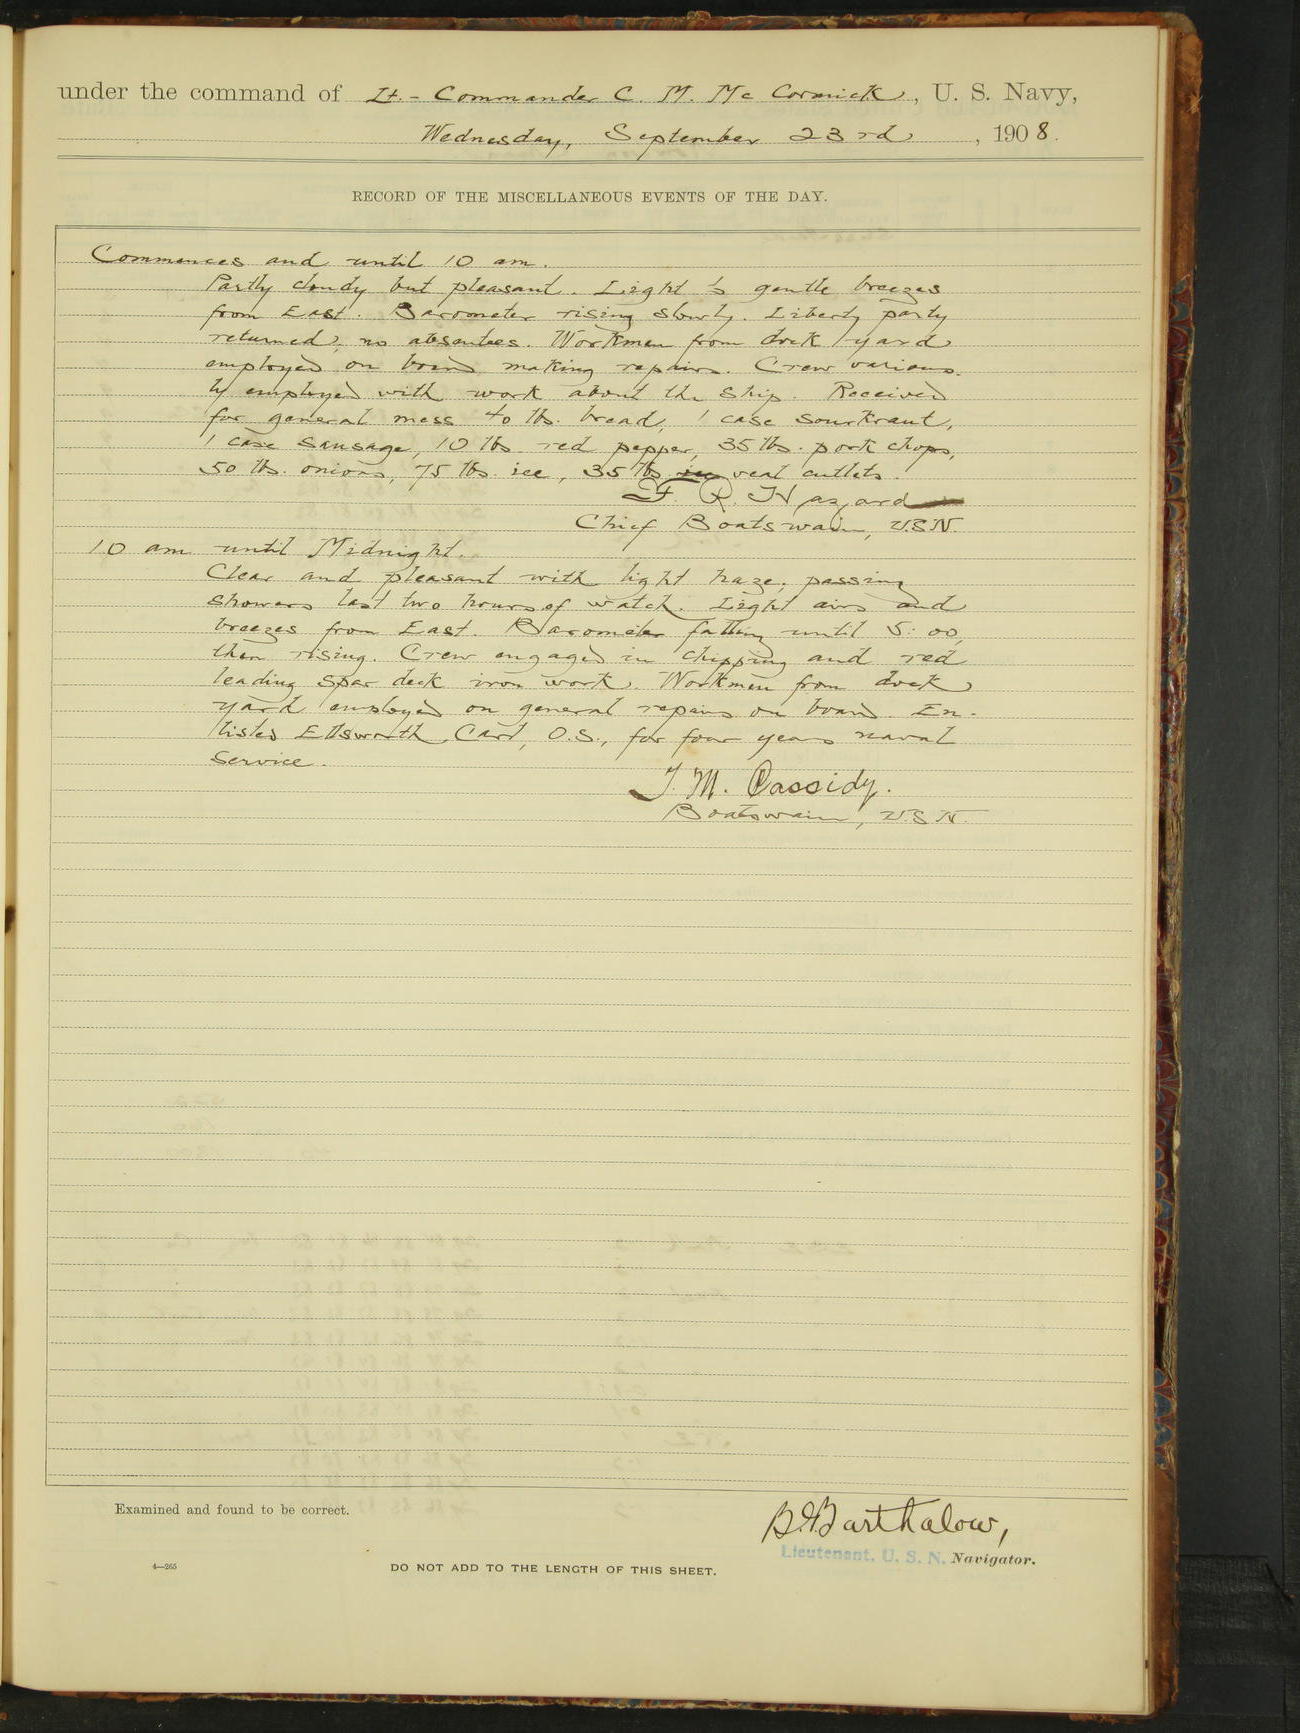 under the command of Lt.- Commander C. M. McCormick, U. S. Navy,
Wednesday, September 23rd, 1908.
RECORD OF THE MISCELLANEOUS EVENTS OF THE DAY.
Commences and until 10 am.
Partly cloudy but pleasant. Light to gentle breezes
from East. Barometer rising slowly. Liberty party
returned, no absentees. Workmen from dock yard
employed on board making repairs. Crew various-
ly employed with work about the ship. Received
for general mess 40 lbs. bread, 1 case sourkraut,
1 case sausage, 10 lbs red pepper, 35 lbs. pork chops,
50 lbs. onions, 75 lbs. ice, 35 lbs ice veal cutlets.
F. R. Hazard
Chief Boatswain, U.S.N.
10 am until Midnight.
Clear and pleasant with light haze, passing
showers last two hours of watch. Light airs and
breezes from East. Barometer falling until 5:00,
then rising. Crew engaged in chipping and red
leading spar deck iron work. Workmen from dock
yard employed on general repairs on board. En-
listed Ellsworth Card, O.S., for four years naval
service.
T. M. Cassidy.
Boatswain, U.S.N.
Examined and found to be correct.
Barthalow,
Lieutenant, U. S. N. Navigator.
4—265
DO NOT ADD TO THE LENGTH OF THIS SHEET.